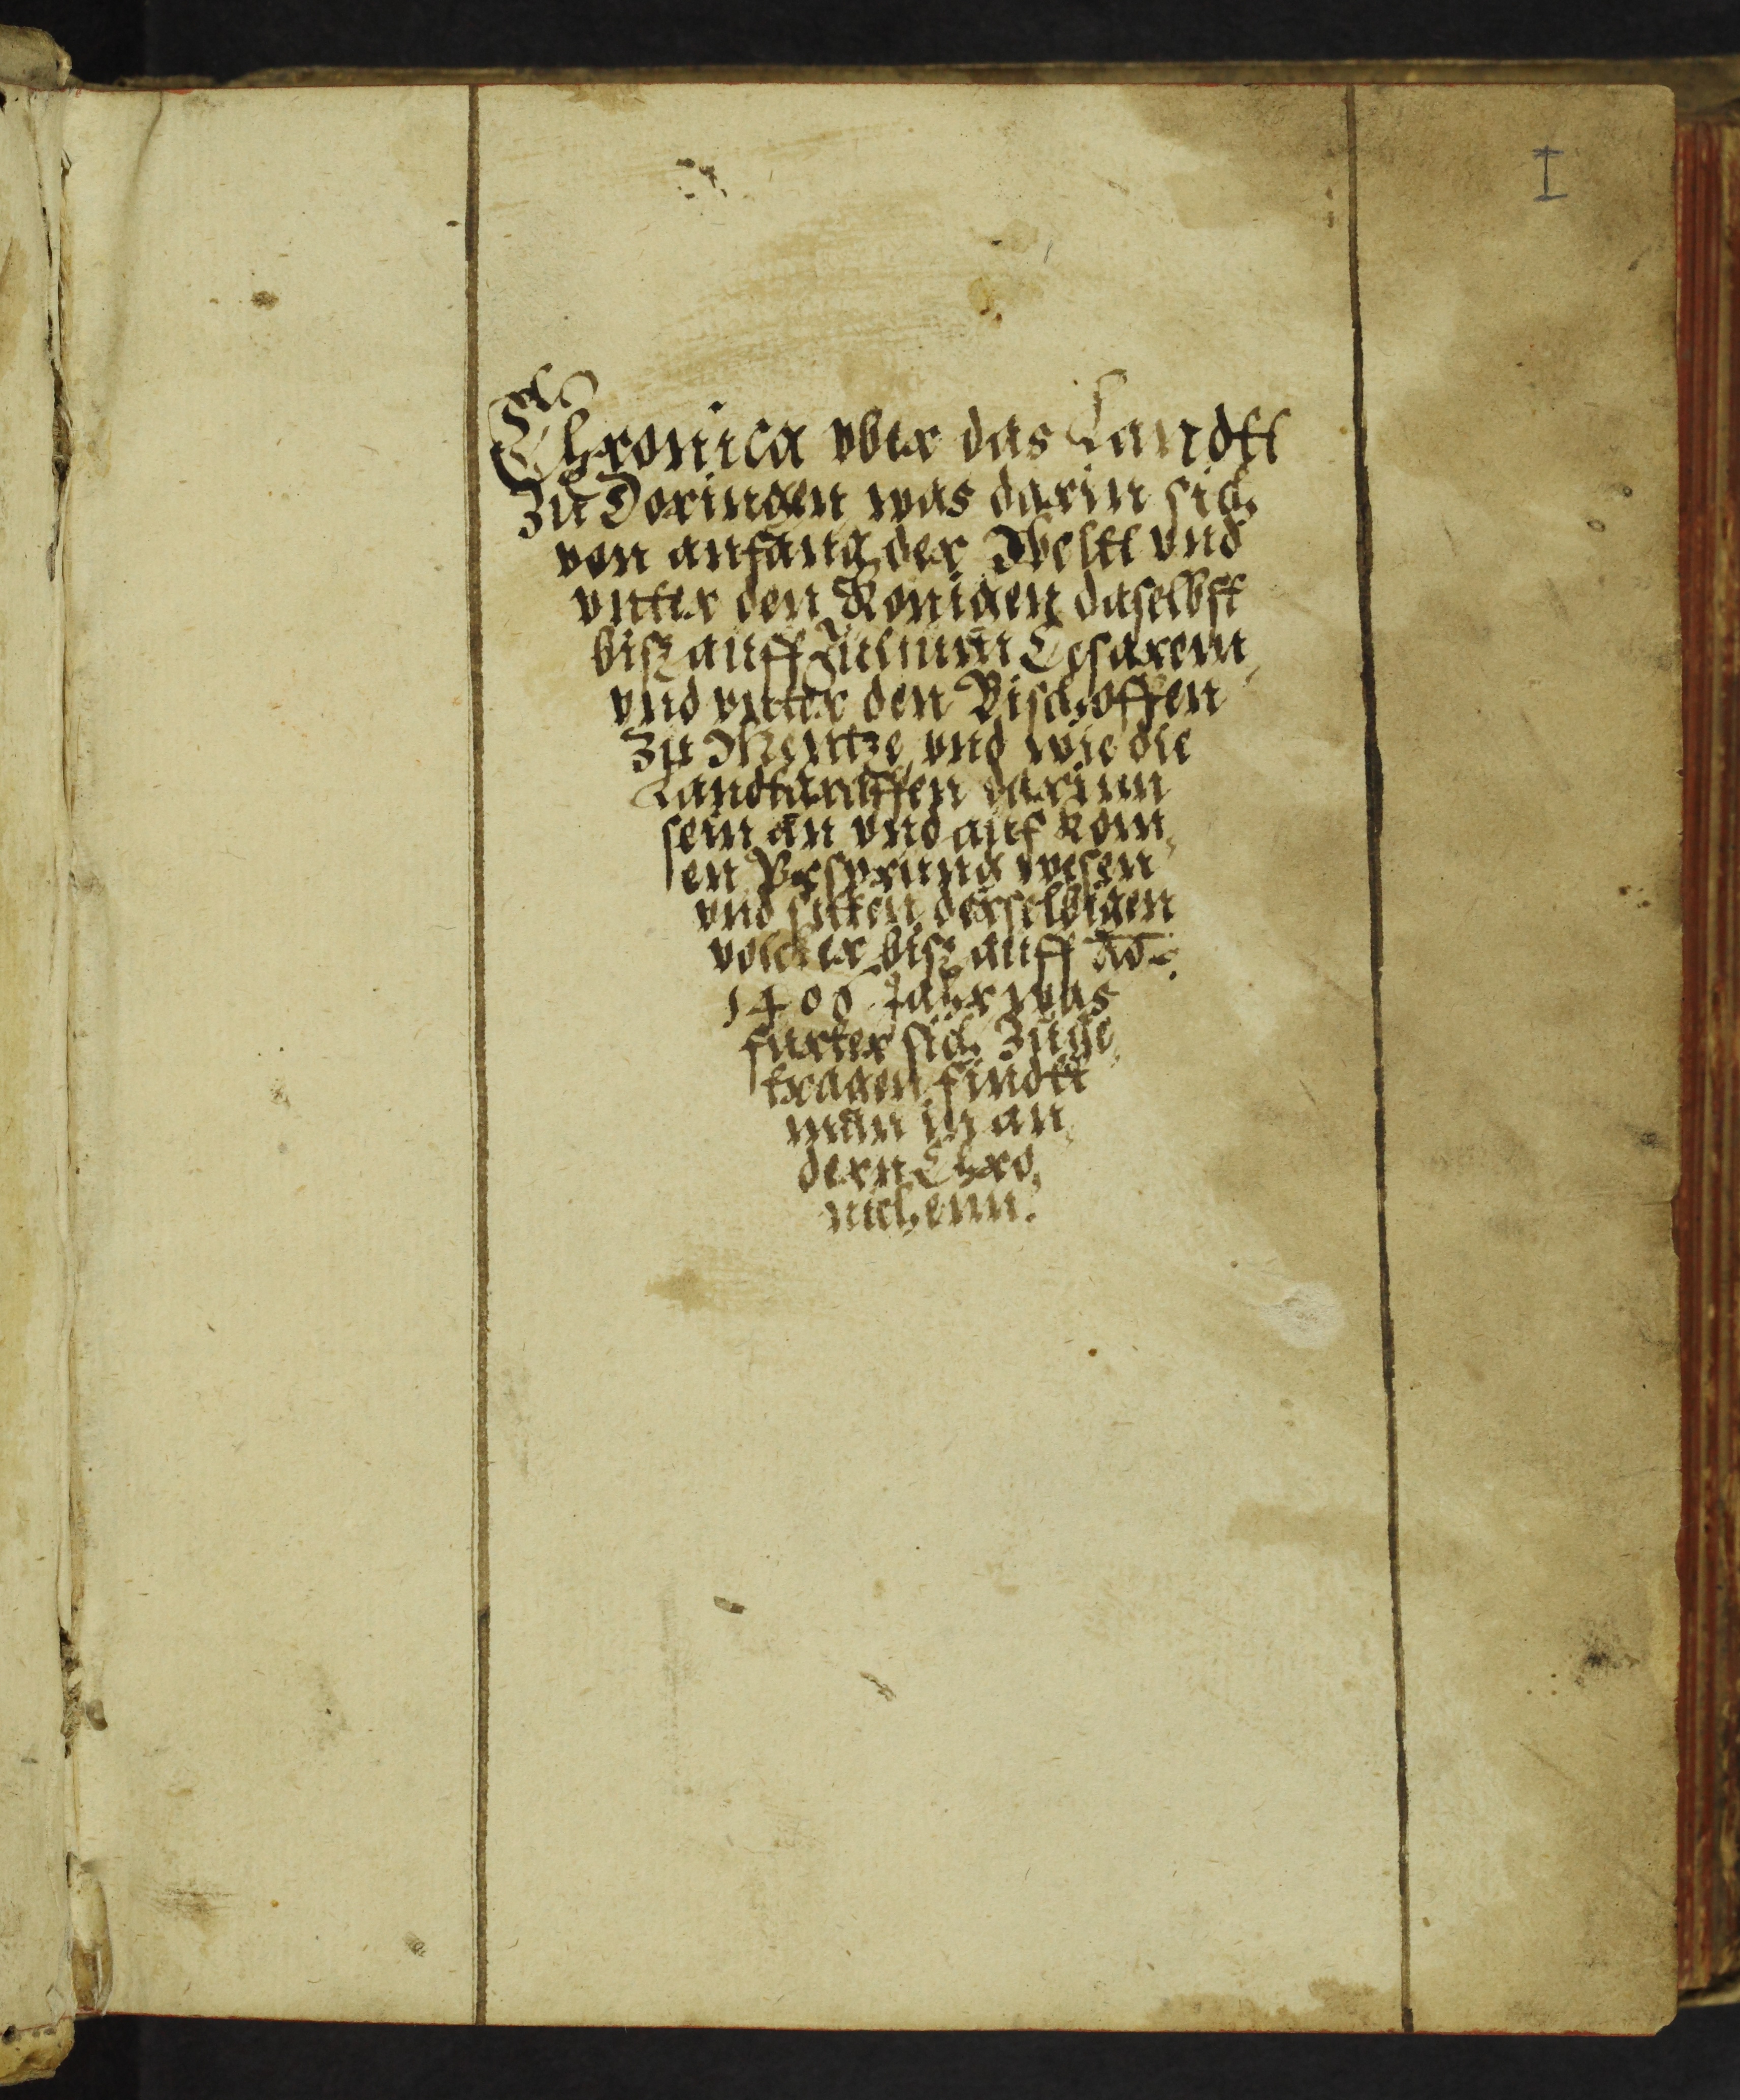 I
Chronica vber das Landtt
zu Doringen was darin sich
von anfang der Weltt vnd
vnter den Konigen daselbst
bisz auff Julium Cesarem,
vnd vnter den Bischoffen
zu Mentze vnd wie die
Landtgraffen darinn
sein an vnd auf kom,
en Vrsprung wesen
vnd sitten derselbigen
volcker bisz auff Ao
1406 Jahr was
furter sich zuge,
tragen findtt
man in an,
dern Chro,
nichenn.